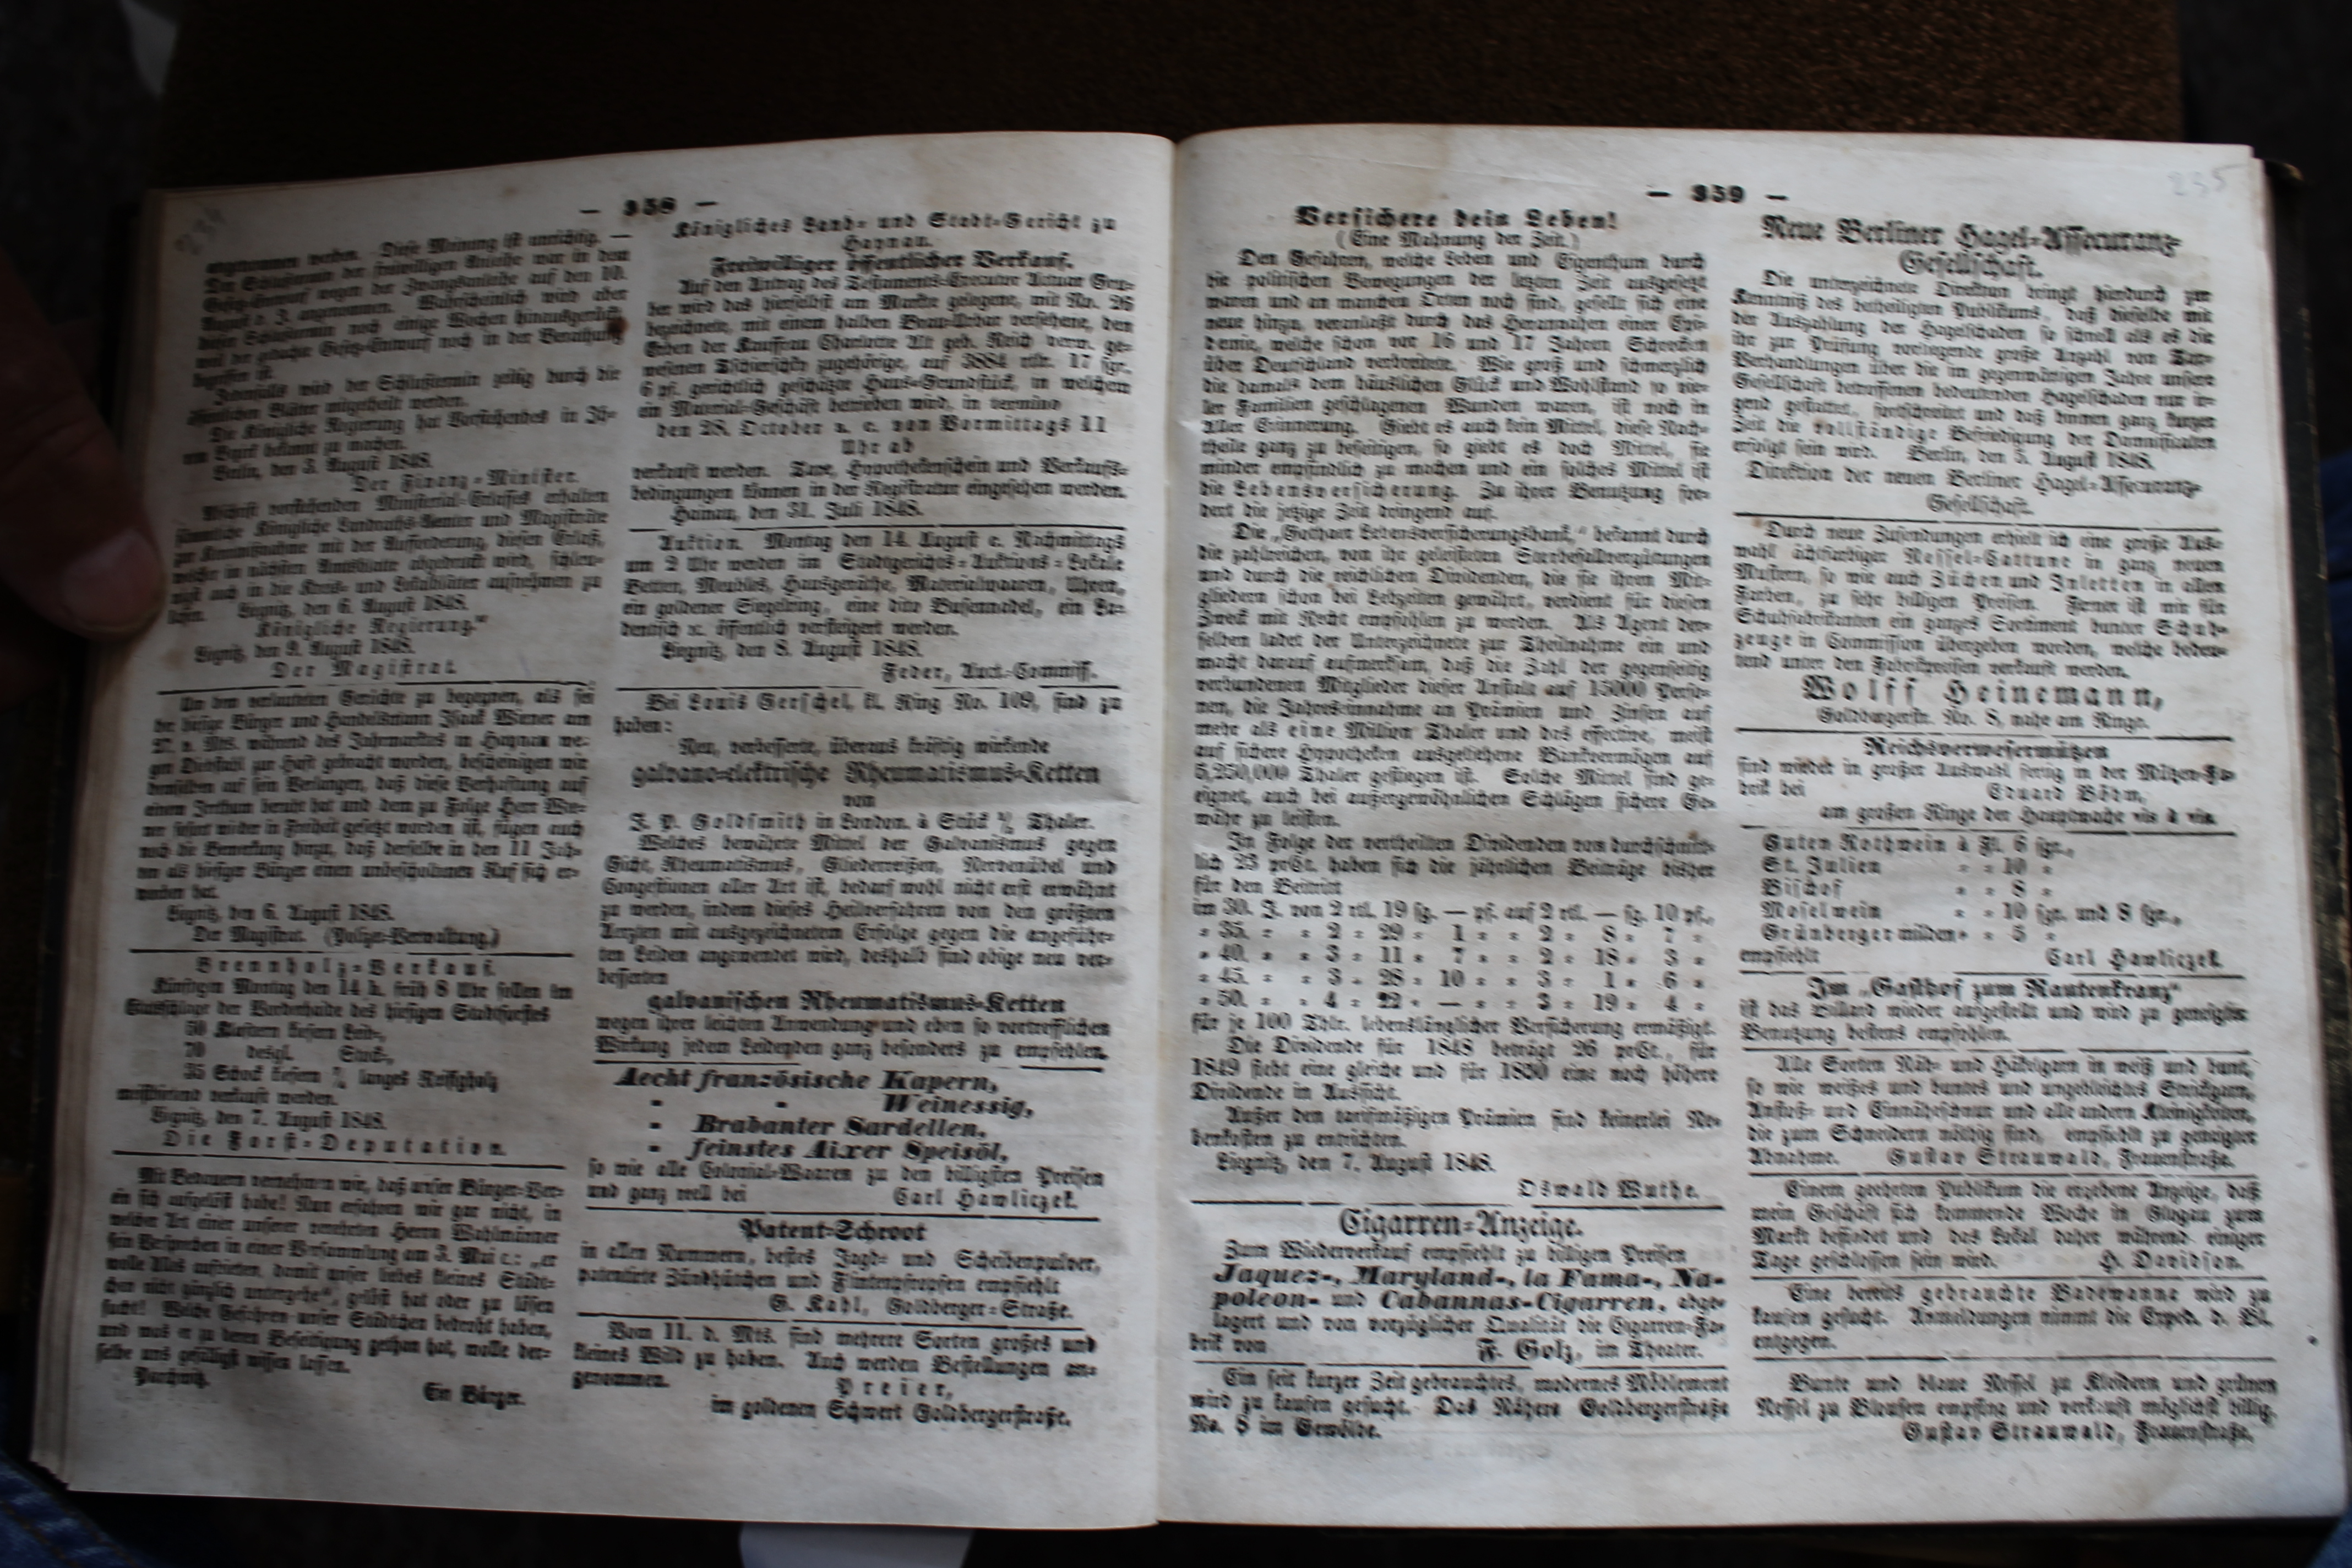 — 358 —
angenommen werden. Diese Meinung ist unrichtig. —
Der Schlußtermin der freiwilligen Anleihe war in dem
Gesetz-Entwurf wegen der Zwangsanleihe auf den 10.
August d. J. angenommen. Wahrscheinlich wird aber
dieser Schlußtermin noch einige Wochen hinausgerückt,
weil der gedachte Gesetz-Entwurf noch in der Berathung
begriffen ist.
Jedenfalls wird der Schlußtermin zeitig durch die
öffentlichen Blätter mitgetheilt werden.
Die Königliche Regierung hat Vorstehendes in Ih-
rem Bezirk bekannt zu machen.
Berlin, den 3. August 1848.
Der Finanz-Minister.
Abschrift vorstehenden Ministerial-Erlasses erhalten
sämmtliche Königliche Landraths-Aemter und Magisträte
zur Kenntnißnahme mit der Aufforderung, diesen Erlaß,
welcher im nächsten Amtsblatte abgedruckt wird, schleu-
nigst auch in die Kreis- und Lokalblätter aufnehmen zu
lassen. Liegnitz, den 6. August 1848.
Königliche Regierung."
Liegnitz, den 9. August 1848.
Der Magistrat.
Um dem verlauteten Gerüchte zu begegnen, als sei
der hiesige Bürger und Handelsmann Isaak Wiener am
27. v. Mts. während des Jahrmarktes in Haynau we-
gen Diebstahl zur Haft gebracht worden, bescheinigen wir
demselben auf sein Verlangen, daß diese Verhaftung auf
einem Irrthum beruht hat und dem zu Folge Herr Wie-
ner sofort wieder in Freiheit gesetzt worden ist, fügen auch
noch die Bemerkung hinzu, daß derselbe in den 11 Jah-
ren als hiesiger Bürger einen unbescholtenen Ruf sich er-
worben hat.
Liegnitz, den 6. August 1848.
Der Magistrat. (Polizei-Verwaltung.)
Brennholz-Verkauf.
Künftigen Montag den 14. h. früh 8 Uhr sollen im
Stattschlage der Vorderhaide des hiesigen Stadtforstes
50 Klaftern kiefern Leib-,
70 desgl. Stock-,
35 Schock kiefern langes Reißigholz
meistbietend verkauft werden.
Liegnitz, den 7. August 1848.
Die Forst-Deputation.
Mit Bedauern vernehmen wir, daß unser Bürger-Ver-
ein sich aufgelöst habe! Nun erfahren wir gar nicht, in
welcher Art einer unserer verehrten Herrn Wahlmänner
sein Versprechen in einer Versammlung am 3. Mai c.: „er
wolle Alles aufbieten, damit unser liebes kleines Städt-
chen nicht gänzlich untergehe", gelöst hat oder zu lösen
sucht! Welche Gefahren unser Städtchen bedroht haben,
und was er zu deren Beseitigung gethan hat, wolle der-
selbe uns gefälligst wissen lassen.
Parchwitz.
Ein Bürger.
Königliches Land- und Stadt-Gericht zu
Haynau.
Freiwilliger öffentlicher Verkauf.
Auf den Antrag des Testaments-Executor Actuar Gru-
ber wird das hierselbst am Markte gelegene, mit No. 26
bezeichnete, mit einem halben Brau-Urbar versehene, den
Erben der Kauffrau Charlotte Alt geb. Reich verw. ge-
wesenen Tschierschky zugehörige, auf 3884 rtlr. 17 sgr.
6 pf. gerichtlich geschätzte Haus-Grundstück, in welchem
ein Material-Geschäft betrieben wird, in termino
den 28. October a. c. von Vormittags 11
Uhr ab
verkauft werden. Taxe, Hypothekenschein und Verkaufs-
bedingungen können in der Registratur eingesehen werden.
Hainau, den 31. Juli 1848.
Auktion. Montag den 14. August c. Nachmittags
um 2 Uhr werden im Stadtgerichts-Auktions-Lokale
Betten, Meubles, Hausgeräthe, Materialwaaren, Uhren,
ein goldener Siegelring, eine dito Busennadel, ein La-
dentisch ꝛc. öffentlich versteigert werden.
Liegnitz, den 8. August 1848.
Feder, Auct.-Commiss.
Bei Louis Gerschel, kl. Ring No. 109, sind zu
haben:
Neu, verbesserte, überaus kräftig wirkende
galvano-elektrische Rheumatismus-Ketten
von
J. P. Goldsmith in London. à Stück ½ Thaler.
Welches bewährte Mittel der Galvanismus gegen
Gicht, Rheumatismus, Gliederreißen, Nervenübel und
Congestionen aller Art ist, bedarf wohl nicht erst erwähnt
zu werden, indem dieses Heilverfahren von den größten
Aerzten mit ausgezeichnetem Erfolge gegen die angeführ-
ten Leiden angewendet wird, deshalb sind obige neu ver-
besserten
galvanischen Rheumatismus-Ketten
wegen ihrer leichten Anwendung und eben so vortrefflichen
Wirkung jedem Leidenden ganz besonders zu empfehlen.
Aecht französische Kapern,
" " Weinessig,
" Brabanter Sardellen,
" feinstes Aixer Speisöl,
so wie alle Colonial-Waaren zu den billigsten Preisen
und ganz reell bei Carl Hawliczek.
Patent-Schroot
in allen Nummern, bestes Jagd- und Scheibenpulver,
patentirte Zündhütchen und Flintenpfropfen empfiehlt
G. Kahl, Goldberger-Straße.
Vom 11. d. Mts. sind mehrere Sorten großes und
kleines Wild zu haben. Auch werden Bestellungen an-
genommen. Preier,
im goldenen Schwert Goldbergerstraße.
— 359 —
235
Versichere dein Leben!
(Eine Mahnung der Zeit.)
Den Gefahren, welche Leben und Eigenthum durch
die politischen Bewegungen der letzten Zeit ausgesetzt
waren und an manchen Orten noch sind, gesellt sich eine
neue hinzu, veranlaßt durch das Herannahen einer Epi-
demie, welche schon vor 16 und 17 Jahren Schrecken
über Deutschland verbreitete. Wie groß und schmerzlich
die damals dem häuslichen Glück und Wohlstand so vie-
ler Familien geschlagenen Wunden waren, ist noch in
Aller Erinnerung. Giebt es auch kein Mittel, diese Nach-
theile ganz zu beseitigen, so giebt es doch Mittel, sie
minder empfindlich zu machen und ein solches Mittel ist
die Lebensversicherung. Zu ihrer Benutzung for-
dert die jetzige Zeit dringend auf.
Die „Gothaer Lebensversicherungsbank," bekannt durch
die zahlreichen, von ihr geleisteten Sterbefallvergütungen
und durch die reichlichen Dividenden, die sie ihren Mit-
gliedern schon bei Lebzeiten gewährt, verdient für diesen
Zweck mit Recht empfohlen zu werden. Als Agent der-
selben ladet der Unterzeichnete zur Theilnahme ein und
macht darauf aufmerksam, daß die Zahl der gegenseitig
verbundenen Mitglieder dieser Anstalt auf 15000 Perso-
nen, die Jahreseinnahme an Prämien und Zinsen auf
mehr als eine Million Thaler und das effective, meist
auf sichere Hypotheken ausgeliehene Bankvermögen auf
5,250,000 Thaler gestiegen ist. Solche Mittel sind ge-
eignet, auch bei außergewöhnlichen Schlägen sichere Ge-
währ zu leisten.
In Folge der vertheilten Dividenden von durchschnitt-
lich 23 proCt. haben sich die jährlichen Beiträge bisher
für den Beitritt
im 30. J. von 2 rtl. 19 sg. — pf. auf 2 rtl. — sg. 10 pf.,
" 35. " " 2 " 29 " 1 " " 2 " 8 " 7 "
" 40. " " 3 " 11 " 7 " " 2 " 18 " 3 "
" 45. " " 3 " 28 " 10 " " 3 " 1 " 6 "
" 50. " " 4 " 22 " — " " 3 " 19 " 4 "
für je 100 Thlr. lebenslänglicher Versicherung ermäßigt.
Die Dividende für 1848 beträgt 26 proCt., für
1849 steht eine gleiche und für 1850 eine noch höhere
Dividende in Aussicht.
Außer den tarifmäßigen Prämien sind keinerlei Ne-
benkosten zu entrichten.
Liegnitz, den 7. August 1848.
Oswald Wuthe.
Cigarren-Anzeige.
Zum Wiederverkauf empfiehlt zu billigen Preisen
Jaquez-, Maryland-, la Fama-, Na-
poleon- und Cabannas-Cigarren, abge-
lagert und von vorzüglicher Qualität die Cigarren-Fa-
brik von F. Golz, im Theater.
Ein seit kurzer Zeit gebrauchtes, modernes Möblement
wird zu kaufen gesucht. Das Nähere Goldbergerstraße
No. 8 im Gewölbe.
Neue Berliner Hagel-Assecuranz-
Gesellschaft.
Die unterzeichnete Direktion bringt hierdurch zur
Kenntniß des betheiligten Publikums, daß dieselbe mit
der Auszahlung der Hagelschäden so schnell als es die
ihr zur Prüfung vorliegende große Anzahl von Tax-
Verhandlungen über die im gegenwärtigen Jahre unsere
Gesellschaft betroffenen bedeutenden Hagelschäden nur ir-
gend gestattet, fortschreitet und daß binnen ganz kurzer
Zeit die vollständige Befriedigung der Damnificaten
erfolgt sein wird. Berlin, den 5. August 1848.
Direktion der neuen Berliner Hagel-Assecuranz-
Gesellschaft.
Durch neue Zusendungen erhielt ich eine große Aus-
wahl ächtfarbiger Nessel-Cattune in ganz neuen
Mustern, so wie auch Züchen und Inletten in allen
Farben, zu sehr billigen Preisen. Ferner ist mir für
Schuhfabrikanten ein ganzes Sortiment bunter Schuh-
zeuge in Commission übergeben worden, welche bedeu-
tend unter den Fabrikpreisen verkauft werden.
Wolff Heinemann,
Goldbergerstr. No. 8, nahe am Ringe.
Reichsverwesermützen
sind wieder in großer Auswahl fertig in der Mützen-Fa-
brik bei Eduard Böhm,
am großen Ringe der Hauptwache vis à vis.
Guten Rothwein à Fl. 6 sgr.,
St. Julien " " 10 "
Bischof " " 8 "
Moselwein " " 10 sgr. und 8 sgr.,
Grünberger milden " " 5 "
empfiehlt Carl Hawliczek.
Im „Gasthof zum Rautenkranz"
ist das Billard wieder aufgestellt und wird zu geneigter
Benutzung bestens empfohlen.
Alle Sorten Näh- und Häkelgarn in weiß und bunt,
so wie weißes und buntes und ungebleichtes Strickgarn,
Anstoß- und Einnäheschnur und alle andern Kleinigkeiten,
die zum Schneidern nöthig sind, empfiehlt zu geneigter
Abnahme. Gustav Strauwald, Frauenstraße.
Einem geehrten Publikum die ergebene Anzeige, daß
mein Geschäft sich kommende Woche in Glogau zum
Markt befindet und das Lokal daher während einiger
Tage geschlossen sein wird. H. Davidson.
Eine bereits gebrauchte Badewanne wird zu
kaufen gesucht. Anmeldungen nimmt die Exped. d. Bl.
entgegen.
Bunte und blaue Nessel zu Kleidern und grünen
Nessel zu Blousen empfing und verkauft möglichst billig,
Gustav Strauwald, Frauenstraße.